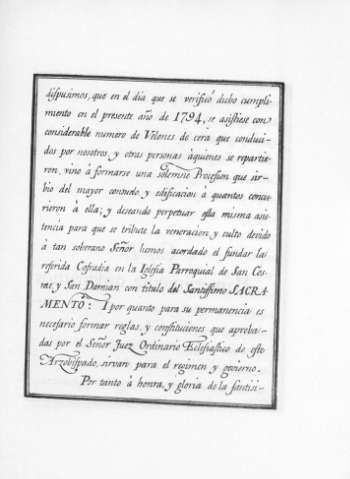 dispusimos, que en el dia que se verificó dicho cumpli-
miento en el presente año de 1794, se asistiese con
considerable numero de Velones de cera que conduci-
dos por nosotros, y otras personas àquienes se repartie-
ron, vino à formarse una solemne Procesion que sir-
bio del mayor consuelo y edificacion à quantos concu-
rieron à ella; y deseando perpetuar esta misma asis-
tencia para que se tribute la veneracion y culto devido
à tan soberano Señor hemos acordado el fundar la
referida Cofradia en la Iglesia Parroquial de San Cos-
me, y San Damian con titulo del Santissimo SACRA-
MENTO: I por quanto para su permanencia es
necesario formar reglas, y constituciones que aproba-
das por el Señor Juez Ordinario Eclesiastico de este
Arzobispado, sirvan para el regimen y govierno.
Por tanto à honra, y gloria de la santisi-